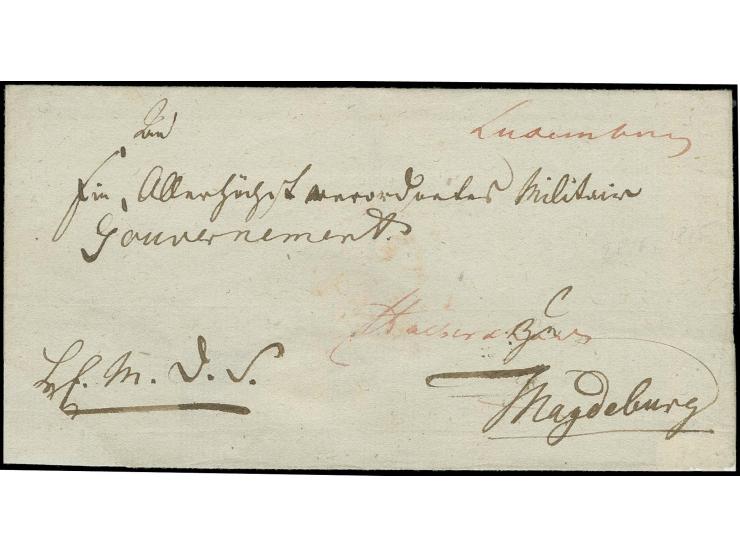 Luxemburg
An
Ein, Allerhöchst verordnetes Militair
Gouvernement.
zu
M. D. S.
Magdeburg